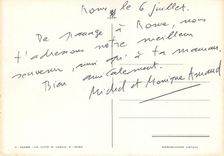 Rome, le 6 juillet.
De passage à Rome, nous
t'adressons notre meilleur
souvenir, ainsi qu'à ta maman.
Bien amicalement.
Michel et Monique Arnaud